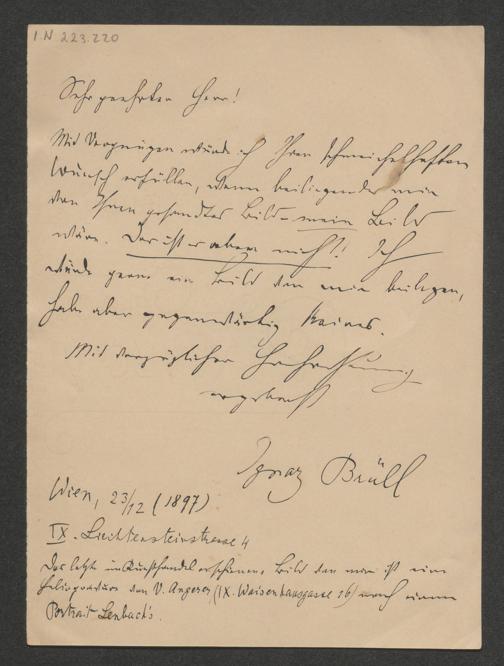 I N 223.220
Sehr geehrter Herr!
Mit Vergnügen würde ich Ihren schmeichelhaften
Wunsch erfüllen, wenn beiliegendes mir
von Ihnen gesandtes Bild – mein Bild
wäre. Das ist es aber nicht! Ich
würde gerne ein Bild von mir beilegen,
habe aber gegenwärtig keines.
Mit vorzüglicher Hochachtung
ergebenst
Ignaz Brüll
Wien, 23/12 (1897)
IX. Liechtensteinstrasse 4
Das letzte im Kunsthandel erschienene Bild von mir ist eine
Heliogravure von V. Angerer, (IX. Waisenhausgasse 16) nach einem
Portrait Lenbach's.